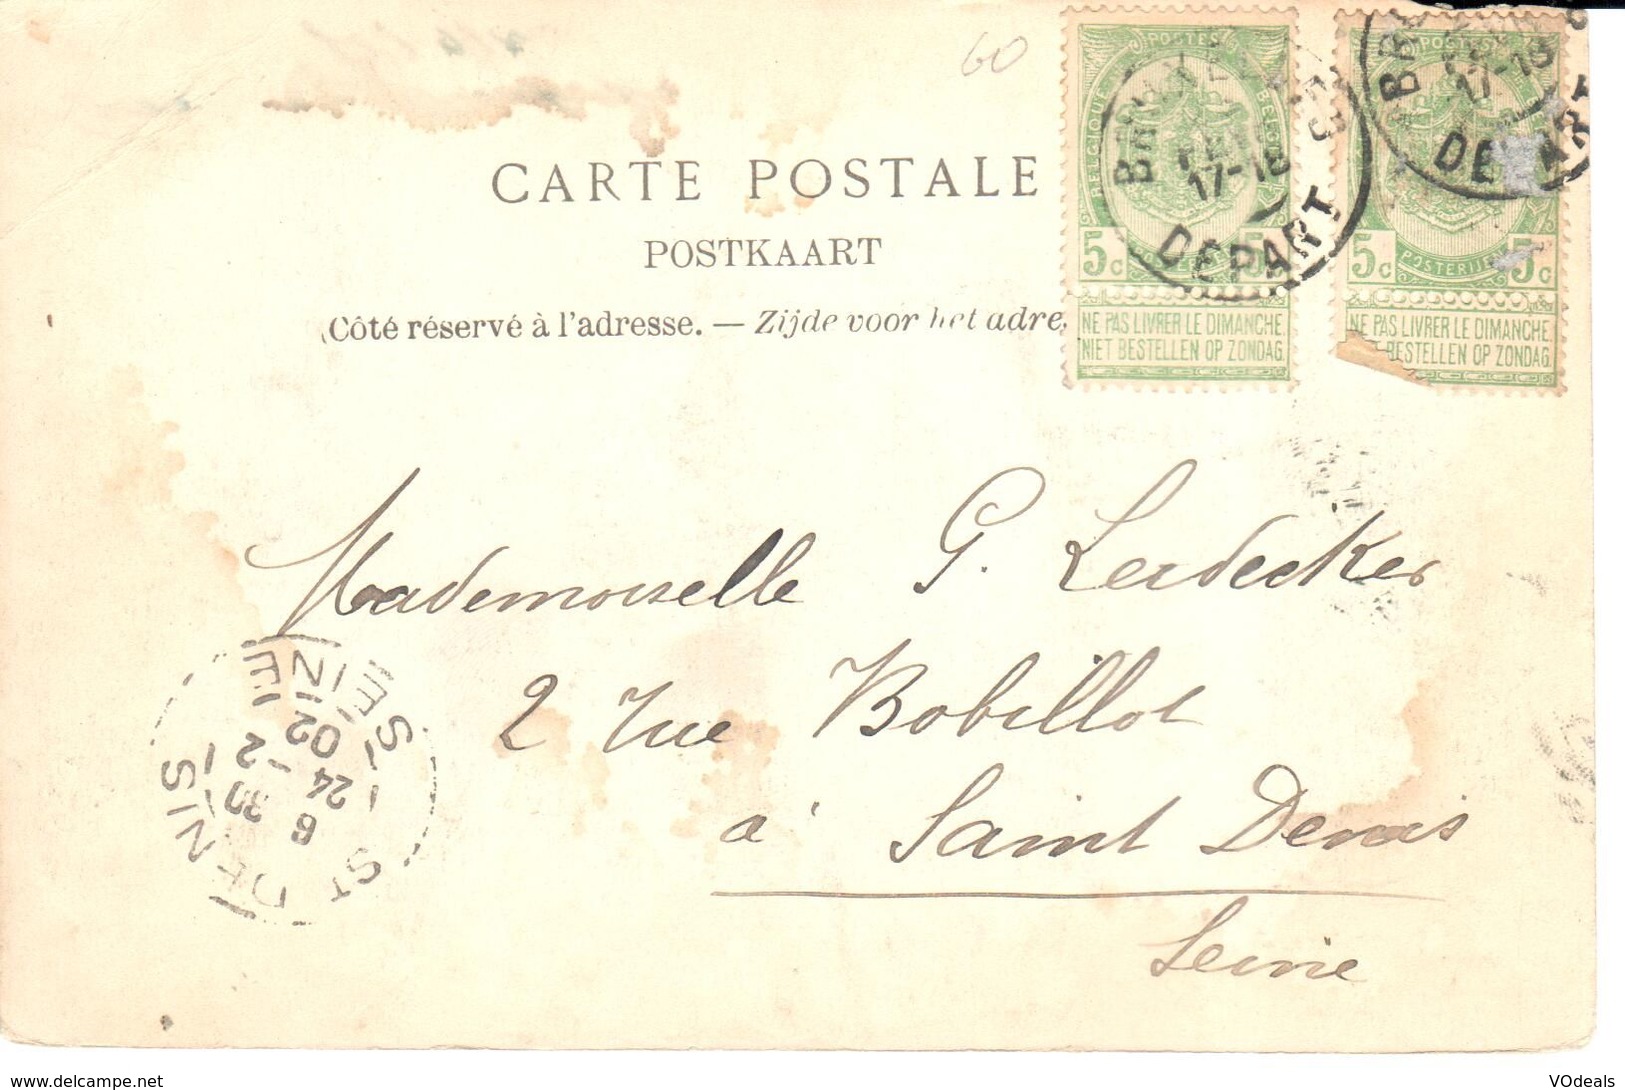 60
CARTE POSTALE
POSTKAART
(Côté réservé à l'adresse. — Zijde voor het adre
POSTES
5c 5c
POSTERIJEN
NE PAS LIVRER LE DIMANCHE
NIET BESTELLEN OP ZONDAG
17-18
DEPART
POSTES
5c 5c
POSTERIJEN
NE PAS LIVRER LE DIMANCHE
BESTELLEN OP ZONDAG
17-18
DEPART
Mademoiselle G. Lerdecker
2 rue Bobillot
à Saint Denis
Seine
ST DENIS
6 30
24 -2
02
SEINE
VOdeals